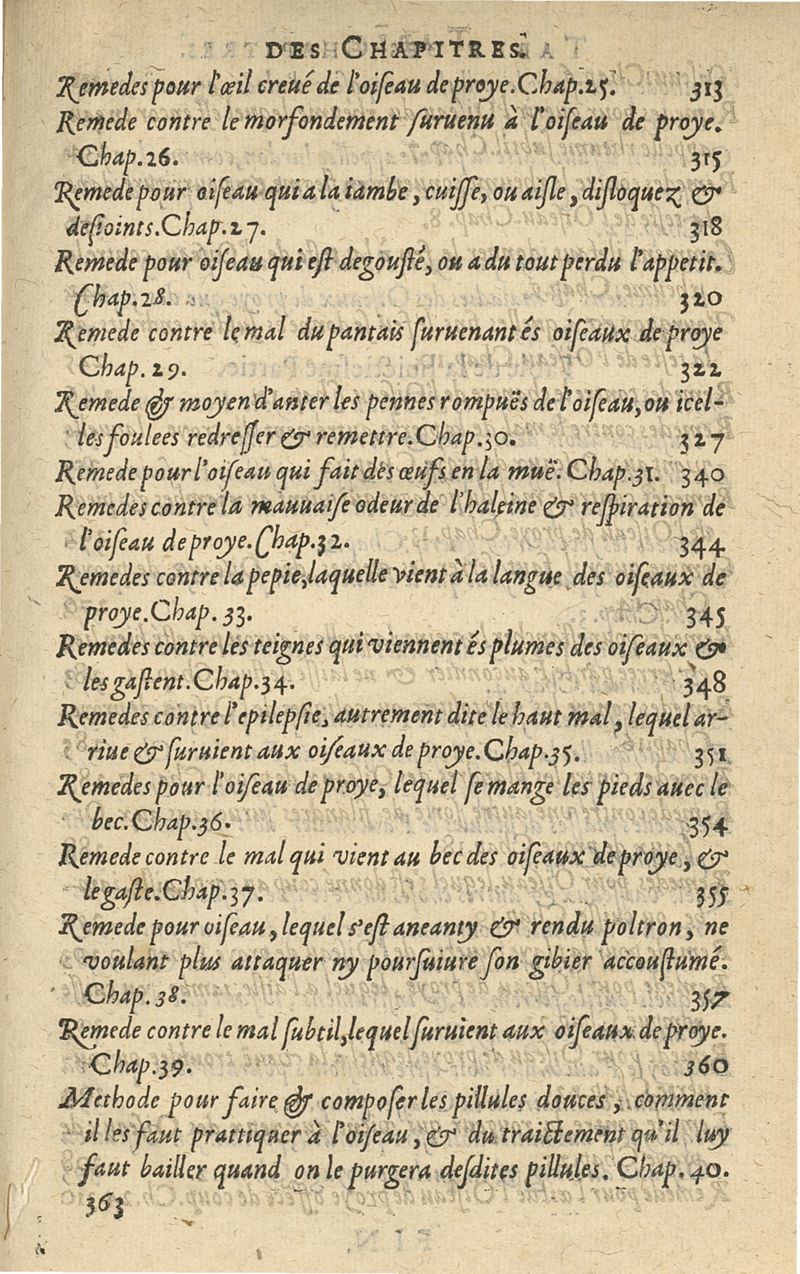 DES CHAPITRES.
Remedes pour l'œil creué de l'oiſeau de proye. Chap. 25. 313
Remede contre le morfondement ſuruenu à l'oiſeau de proye.
Chap. 26. 315
Remede pour oiſeau qui a la iambe, cuiſſe, ou aiſle, diſloquez &
desioints. Chap. 27. 318
Remede pour oiſeau qui eſt degouſté, ou a du tout perdu l'appetit.
Chap. 28. 320
Remede contre le mal du pantais ſuruenant és oiſeaux de proye
Chap. 29. 322
Remede & moyen d'anter les pennes rompuës de l'oiſeau, ou icel-
les foulees redreſſer & remettre. Chap. 30. 327
Remede pour l'oiſeau qui fait des œufs en la muë. Chap. 31. 340
Remedes contre la mauuaiſe odeur de l'haleine & reſpiration de
l'oiſeau de proye. Chap. 32. 344
Remedes contre la pepie, laquelle vient à la langue des oiſeaux de
proye. Chap. 33. 345
Remedes contre les teignes qui viennent és plumes des oiſeaux &
les gaſtent. Chap. 34. 348
Remedes contre l'epilepſie, autrement dite le haut mal, lequel ar-
riue & ſuruient aux oiſeaux de proye. Chap. 35. 351
Remedes pour l'oiſeau de proye, lequel ſe mange les pieds auec le
bec. Chap. 36. 354
Remede contre le mal qui vient au bec des oiſeaux de proye, &
le gaſte. Chap. 37. 355
Remede pour oiſeau, lequel s'eſt aneanty & rendu poltron, ne
voulant plus attaquer ny pourſuiure ſon gibier accouſtumé.
Chap. 38. 357
Remede contre le mal ſubtil, lequel ſuruient aux oiſeaux de proye.
Chap. 39. 360
Methode pour faire & compoſer les pillules douces, comment
il les faut prattiquer à l'oiſeau, & du traictement qu'il luy
faut bailler quand on le purgera deſdites pillules. Chap. 40.
363